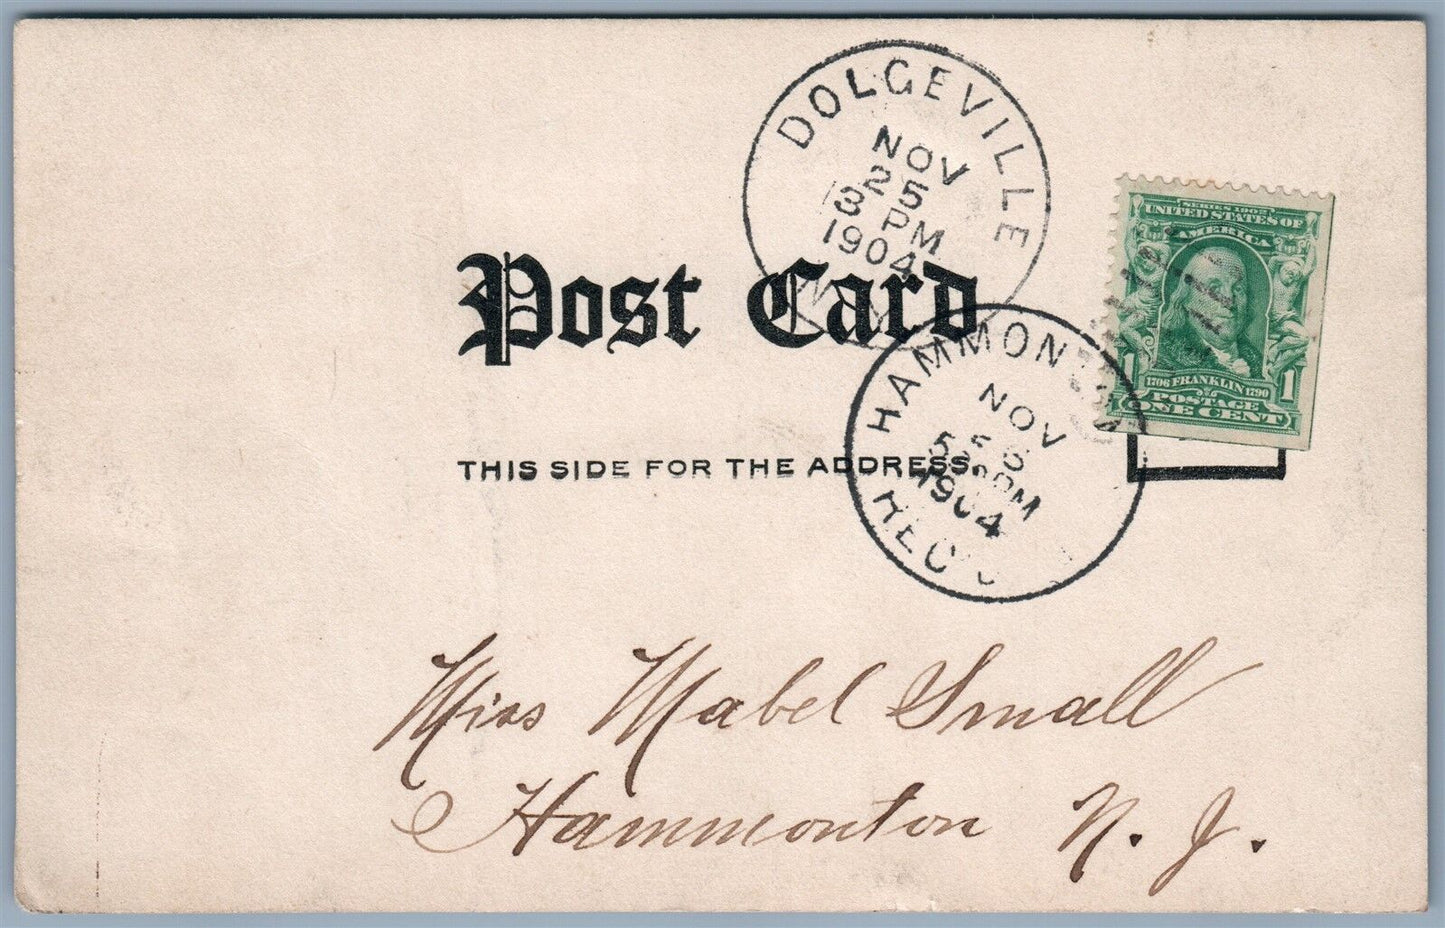 DOLGEVILLE
NOV
25
3 PM
1904
N.Y.
Post Card
THIS SIDE FOR THE ADDRESS.
SERIES 1902
UNITED STATES OF
AMERICA
1 1
1706 FRANKLIN 1790
POSTAGE
ONE CENT
HAMMONTON
NOV
1904
REC'D
Miss Mabel Small
Hammonton N. J.